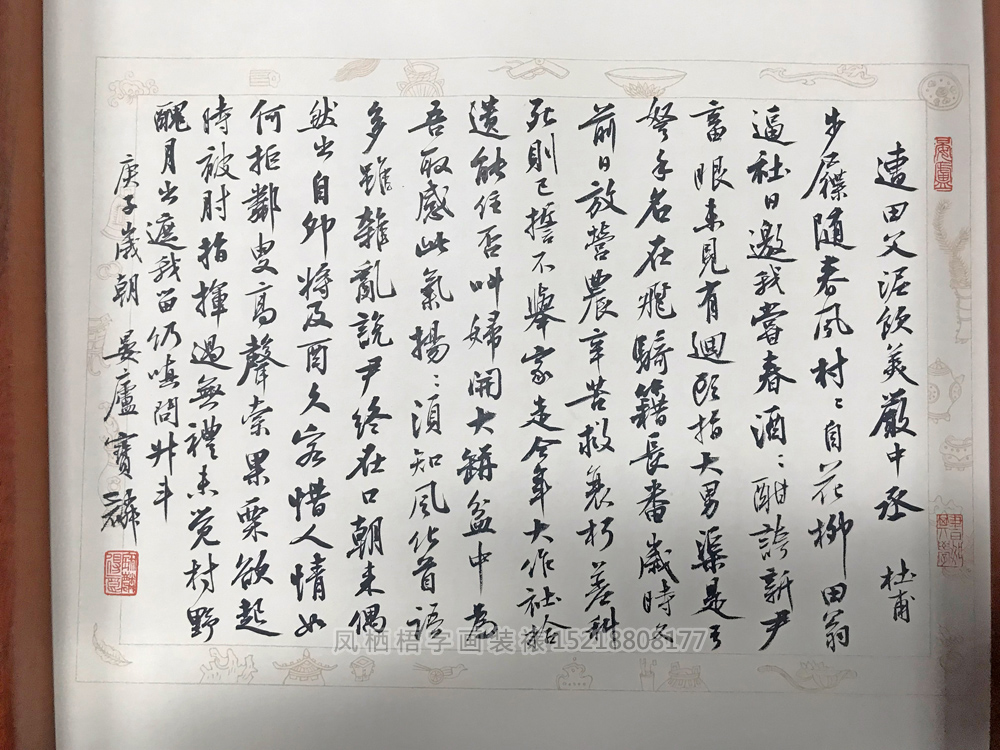 遭田父泥飲美嚴中丞 杜甫
步屧隨春風村〻自花柳田翁
逼社日邀我嘗春酒〻酣誇新尹
畜眼未見有迴頭指大男渠是弓
弩手名在飛騎籍長番歲時久
前日放營農辛苦救衰朽差科
死則已誓不舉家走今年大作社拾
遺能住否叫婦開大缾盆中為
吾取感此氣揚〻須知風化首語
多雖雜亂說尹終在口朝來偶
然出自卯將及酉久客惜人情如
何拒鄰叟高聲索果栗欲起
時被肘指揮過無禮未覺村野
醜月出遮我留仍嗔問升斗
庚子歲朝 晏廬寶麟
凤栖梧字画装裱15218808177